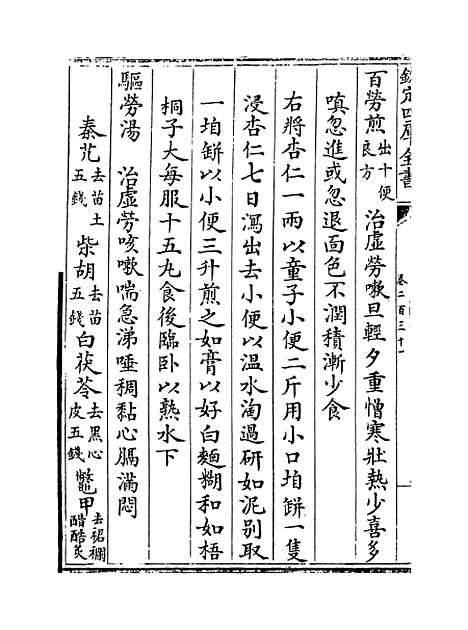 欽定四庫全書
卷二百三十一
百勞煎出十便良方 治虛勞嗽旦輕夕重憎寒壯熱少喜多
嗔忽進或忽退面色不潤積漸少食
右將杏仁一兩以童子小便二斤用小口垍缾一隻
浸杏仁七日瀉出去小便以温水淘過研如泥别取
一垍缾以小便三升煎之如膏以好白麵糊和如梧
桐子大每服十五丸食後臨卧以熟水下
驅勞湯 治虛勞咳嗽喘急涕唾稠黏心膈滿悶
秦艽去苗土五錢 柴胡去苗五錢 白茯苓去黒心皮五錢 鼈甲去裙襴醋酷炙